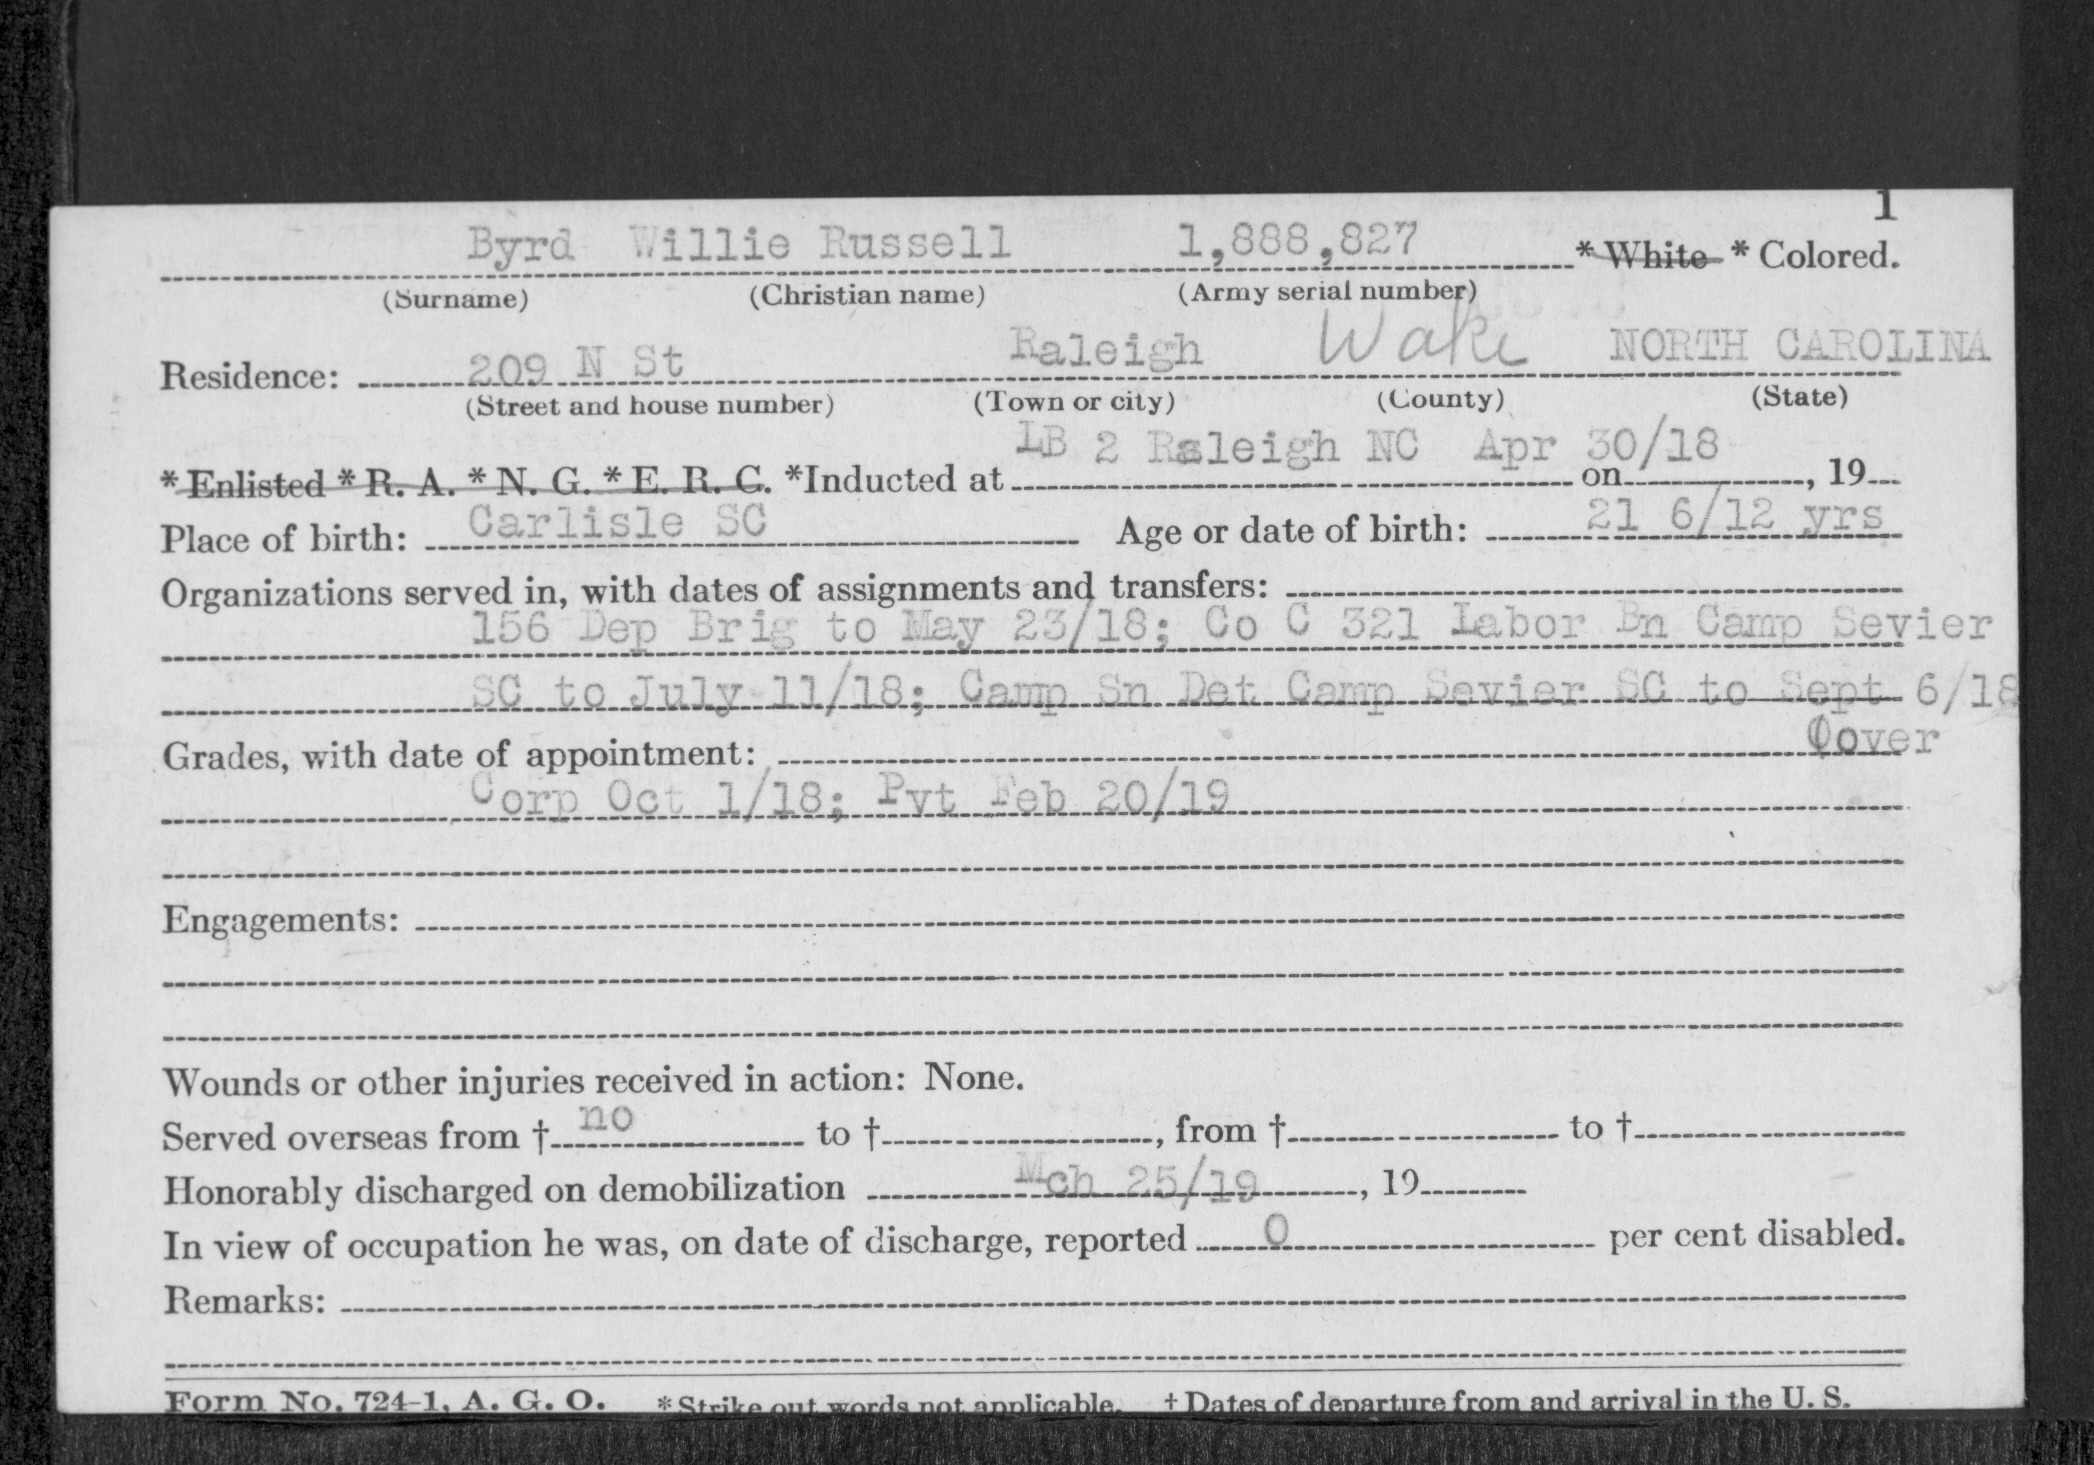 1
Byrd Willie Russell 1,888,827 * White * Colored.
(Surname) (Christian name) (Army serial number)
Residence: 209 N St Raleigh Wake NORTH CAROLINA
(Street and house number) (Town or city) (County) (State)
* Enlisted * R. A. * N. G. * E. R. C. *Inducted at LB 2 Raleigh NC Apr 30/18 on , 19
Place of birth: Carlisle SC Age or date of birth: 21 6/12 yrs
Organizations served in, with dates of assignments and transfers:
156 Dep Brig to May 23/18; Co C 321 Labor Bn Camp Sevier
SC to July 11/18; Camp Sn Det Camp Sevier SC to Sept 6/18
Grades, with date of appointment: over
Corp Oct 1/18; Pvt Feb 20/19
Engagements:
Wounds or other injuries received in action: None.
Served overseas from † no to † , from † to †
Honorably discharged on demobilization Mch 25/19 , 19
In view of occupation he was, on date of discharge, reported 0 per cent disabled.
Remarks:
Form No. 724-1, A. G. O. * Strike out words not applicable. † Dates of departure from and arrival in the U. S.